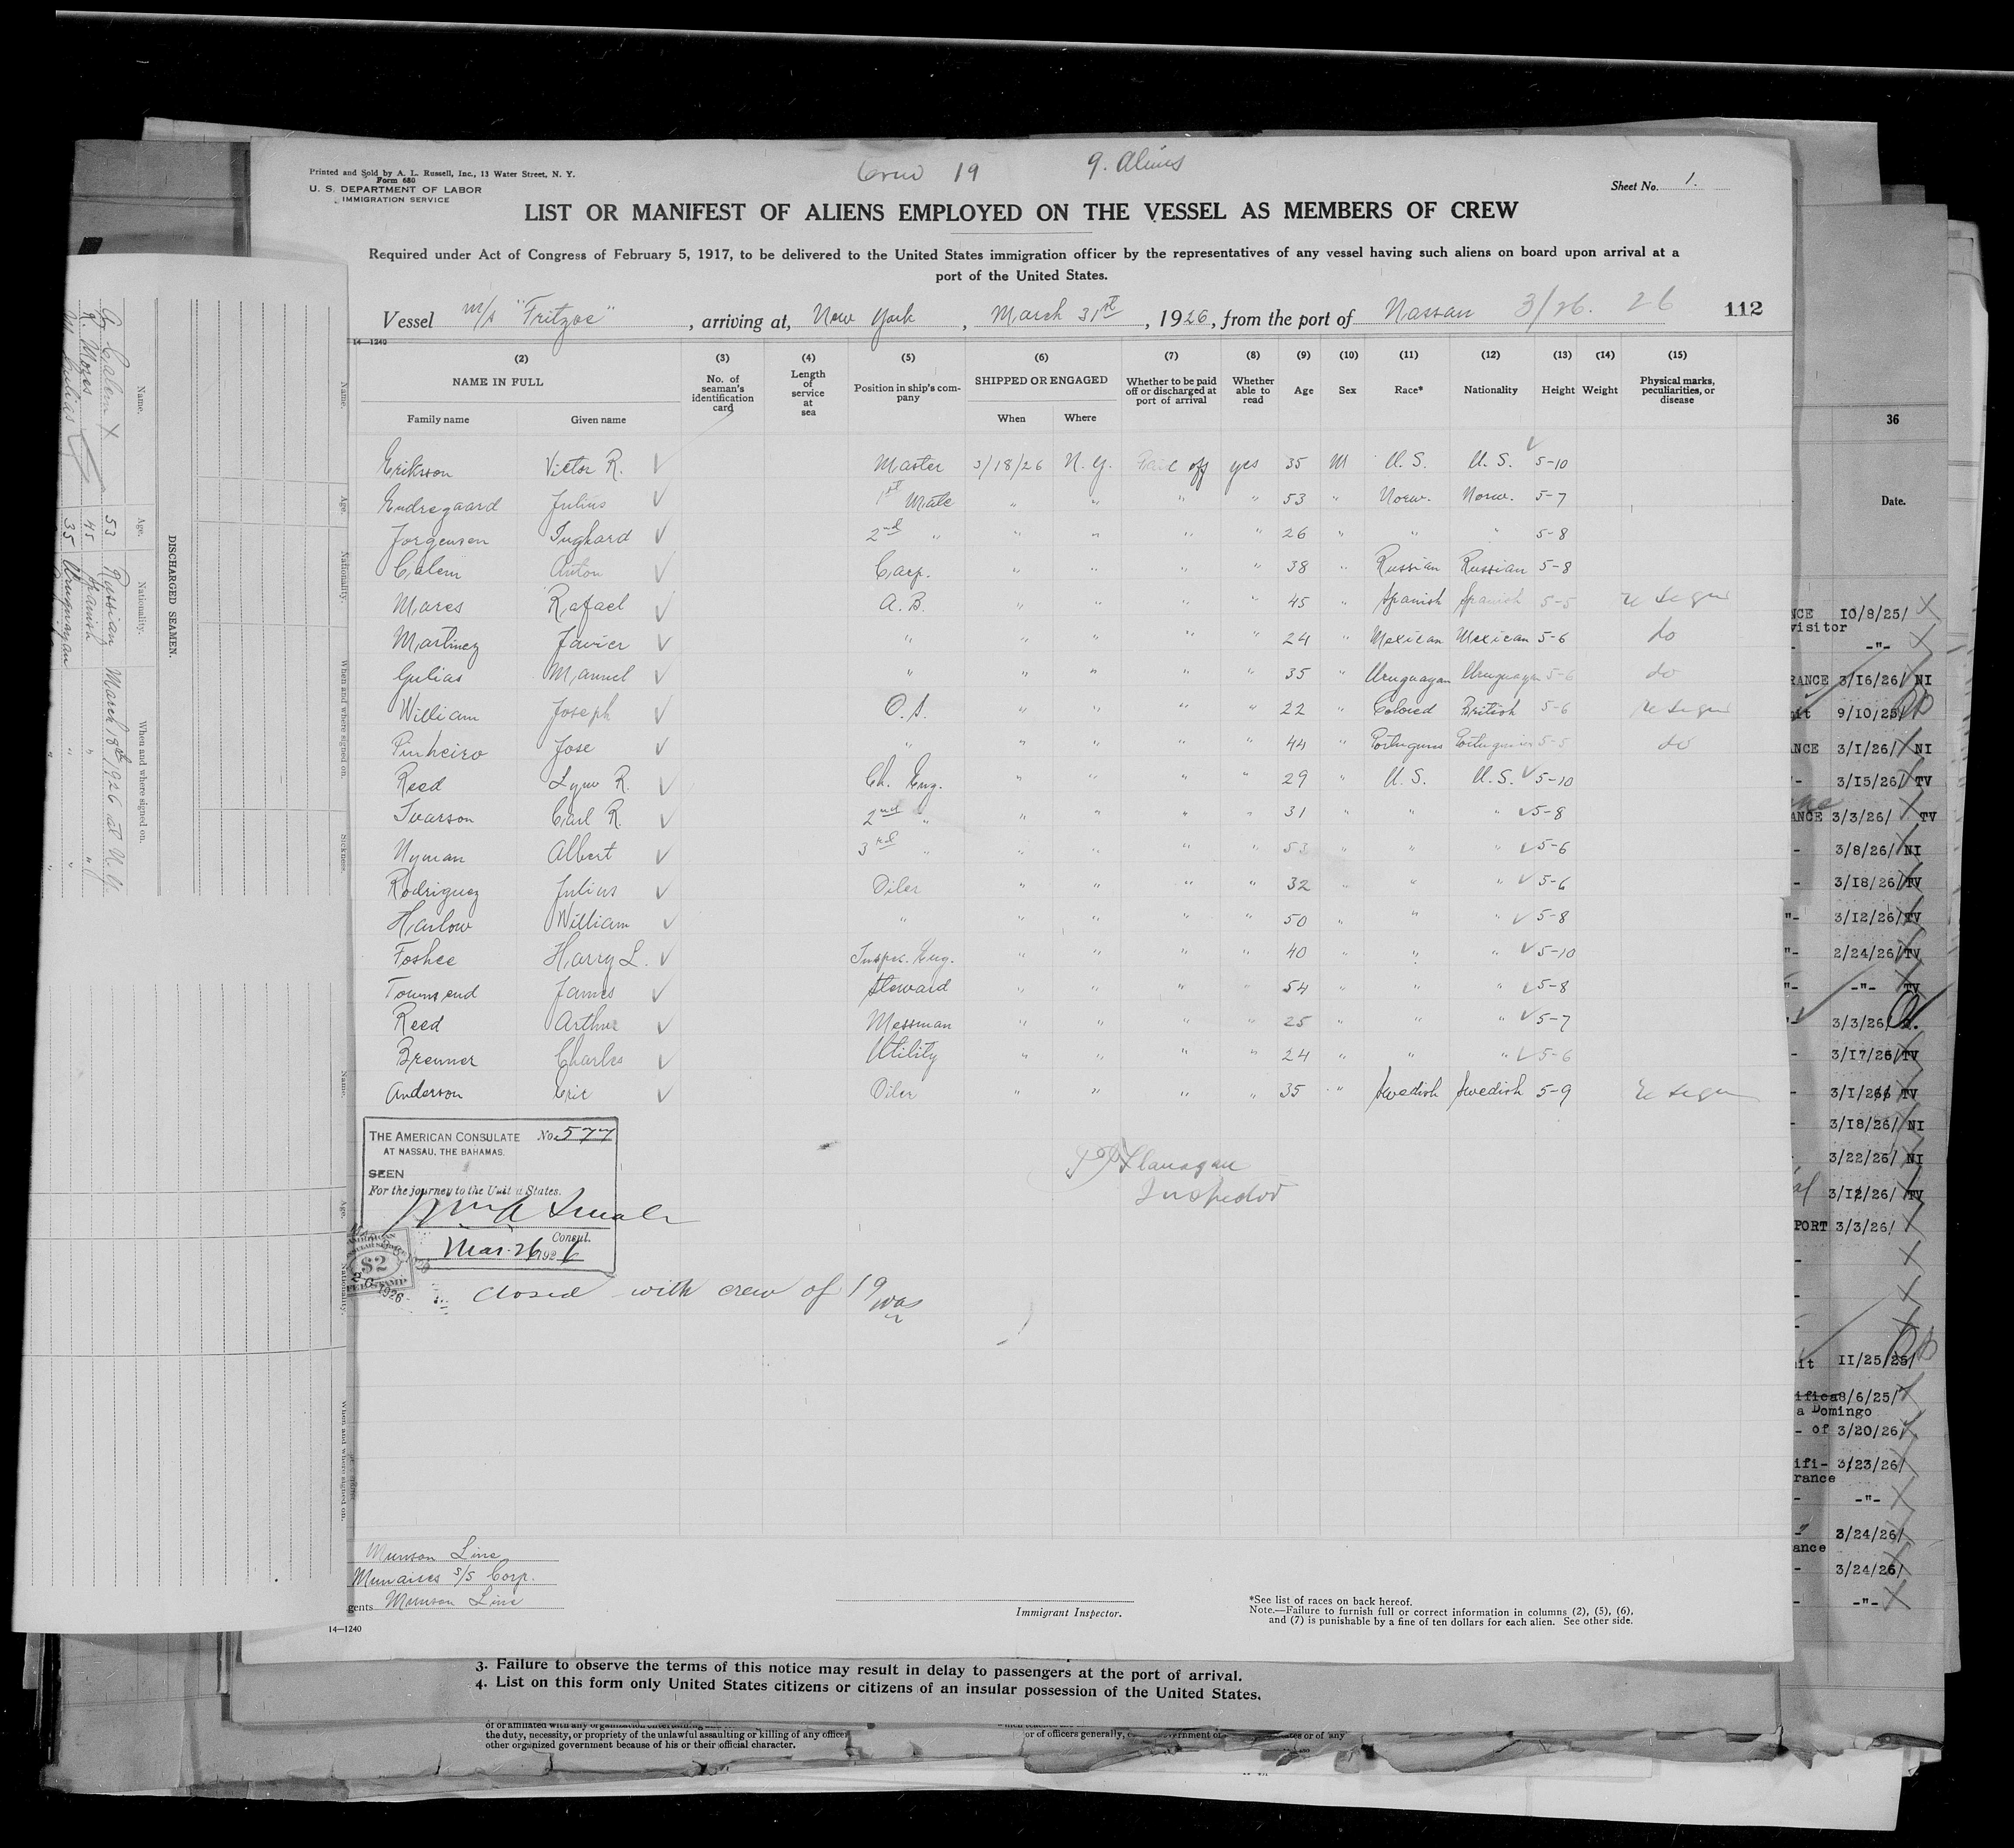 Crew 19 9. Aliens
Printed and Sold by A. L. Russell, Inc., 13 Water Street, N. Y.
Form 680
U. S. DEPARTMENT OF LABOR
IMMIGRATION SERVICE
Sheet No. 1.
LIST OR MANIFEST OF ALIENS EMPLOYED ON THE VESSEL AS MEMBERS OF CREW
Required under Act of Congress of February 5, 1917, to be delivered to the United States immigration officer by the representatives of any vessel having such aliens on board upon arrival at a
port of the United States.
Vessel m/s "Fritzoe", arriving at, New York, March 31st, 1926, from the port of Nassau 3/26. 26 112
14—1240
(2) (3) (4) (5) (6) (7) (8) (9) (10) (11) (12) (13) (14) (15)
NAME IN FULL No. of seaman's identification card Length of service at sea Position in ship's company SHIPPED OR ENGAGED Whether to be paid off or discharged at port of arrival Whether able to read Age Sex Race* Nationality Height Weight Physical marks, peculiarities, or disease
Family name Given name When Where
Eriksson Victor R. Master 3/18/26 N.Y. Paid off yes 35 M U.S. U.S. 5-10
Endregaard Julius 1st Mate " " " " 53 " Norw. Norw. 5-7
Jorgensen Inghard 2nd " " " " " 26 " " " 5-8
Calem Anton Carp. " " " " 38 " Russian Russian 5-8
Mares Rafael A.B. " " " " 45 " Spanish Spanish 5-5
Martinez Javier " " " " " 24 " Mexican Mexican 5-6 do
Gulias Manuel " " " " " 35 " Uruguayan Uruguayan 5-6 do
William Joseph O.S. " " " " 22 " Colored British 5-6
Pinheiro Jose " " " " " 44 " Portuguese Portuguese 5-5 do
Reed Lynn R. Ch. Eng. " " " " 29 " U.S. U.S. 5-10
Ivarson Carl R. 2nd " " " " " 31 " " " 5-8
Nyman Albert 3rd " " " " " 53 " " " 5-6
Rodriguez Julius Oiler " " " " 32 " " " 5-6
Harlow William " " " " " 50 " " " 5-8
Foshee Harry L. Inspec. Eng. " " " " 40 " " " 5-10
Townsend James Steward " " " " 54 " " " 5-8
Reed Arthur Messman " " " " 25 " " " 5-7
Brenner Charles Utility " " " " 24 " " " 5-6
Anderson Eric Oiler " " " " 35 " Swedish Swedish 5-9
THE AMERICAN CONSULATE No. 577
AT NASSAU, THE BAHAMAS.
SEEN
For the journey to the United States.
Consul.
Mar. 26 1926
$2
1926
Closed with crew of 19
Flanagan
Inspector
Munson Line
Munaires S/S Corp.
gents Munson Line
Immigrant Inspector.
*See list of races on back hereof.
Note.—Failure to furnish full or correct information in columns (2), (5), (6),
and (7) is punishable by a fine of ten dollars for each alien. See other side.
14—1240
DISCHARGED SEAMEN.
Name. Age. Nationality. When and where signed on. Sickness.
Calem X 53 Russian March 18th 1926 at N.Y.
R. Mores 45 Spanish " "
M. Gulias 35 Uruguayan " "
Name. Age. Nationality. When and where signed on.
3. Failure to observe the terms of this notice may result in delay to passengers at the port of arrival.
4. List on this form only United States citizens or citizens of an insular possession of the United States.
the duty, necessity, or propriety of the unlawful assaulting or killing of any officer
or of officers generally,
other organized government because of his or their official character.
36
Date.
10/8/25/
visitor
-"-
3/16/26/ NI
9/10/25/
3/1/26/ NI
3/15/26/ TV
3/3/26/ TV
3/8/26/ NI
3/18/26/ TV
3/12/26/ TV
2/24/26/ TV
-"- TV
3/3/26/
3/17/26/ TV
3/1/26 TV
3/18/26/ NI
3/22/26/ NI
3/12/26/ TV
PORT 3/3/26/
11/25/25/
8/6/25/
a Domingo
of 3/20/26/
ifi- 3/23/26/
rance
-"-
3/24/26/
ance
3/24/26/
-"-